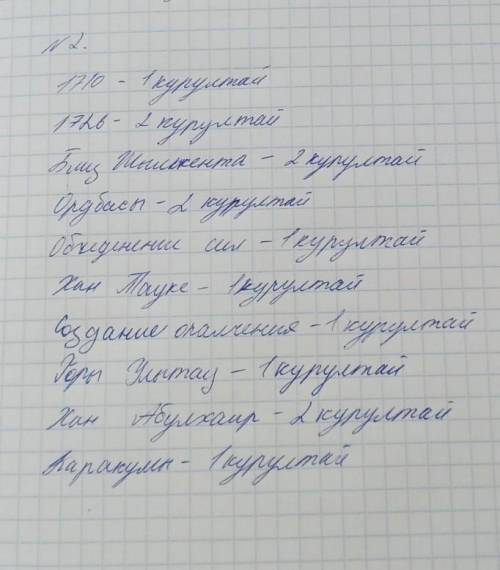 №2.
1710 - 1 курултай
1726 - 2 курултай
Близ Шымкента - 2 курултай
Ордбасы - 2 курултай
Объеденение сил - 1 курултай
Хан Тауке - 1 курултай
Создание ополчения - 1 курултай
Горы Улытау - 1 курултай
Хан Абулхаир - 2 курултай
Каракумы - 1 курултай